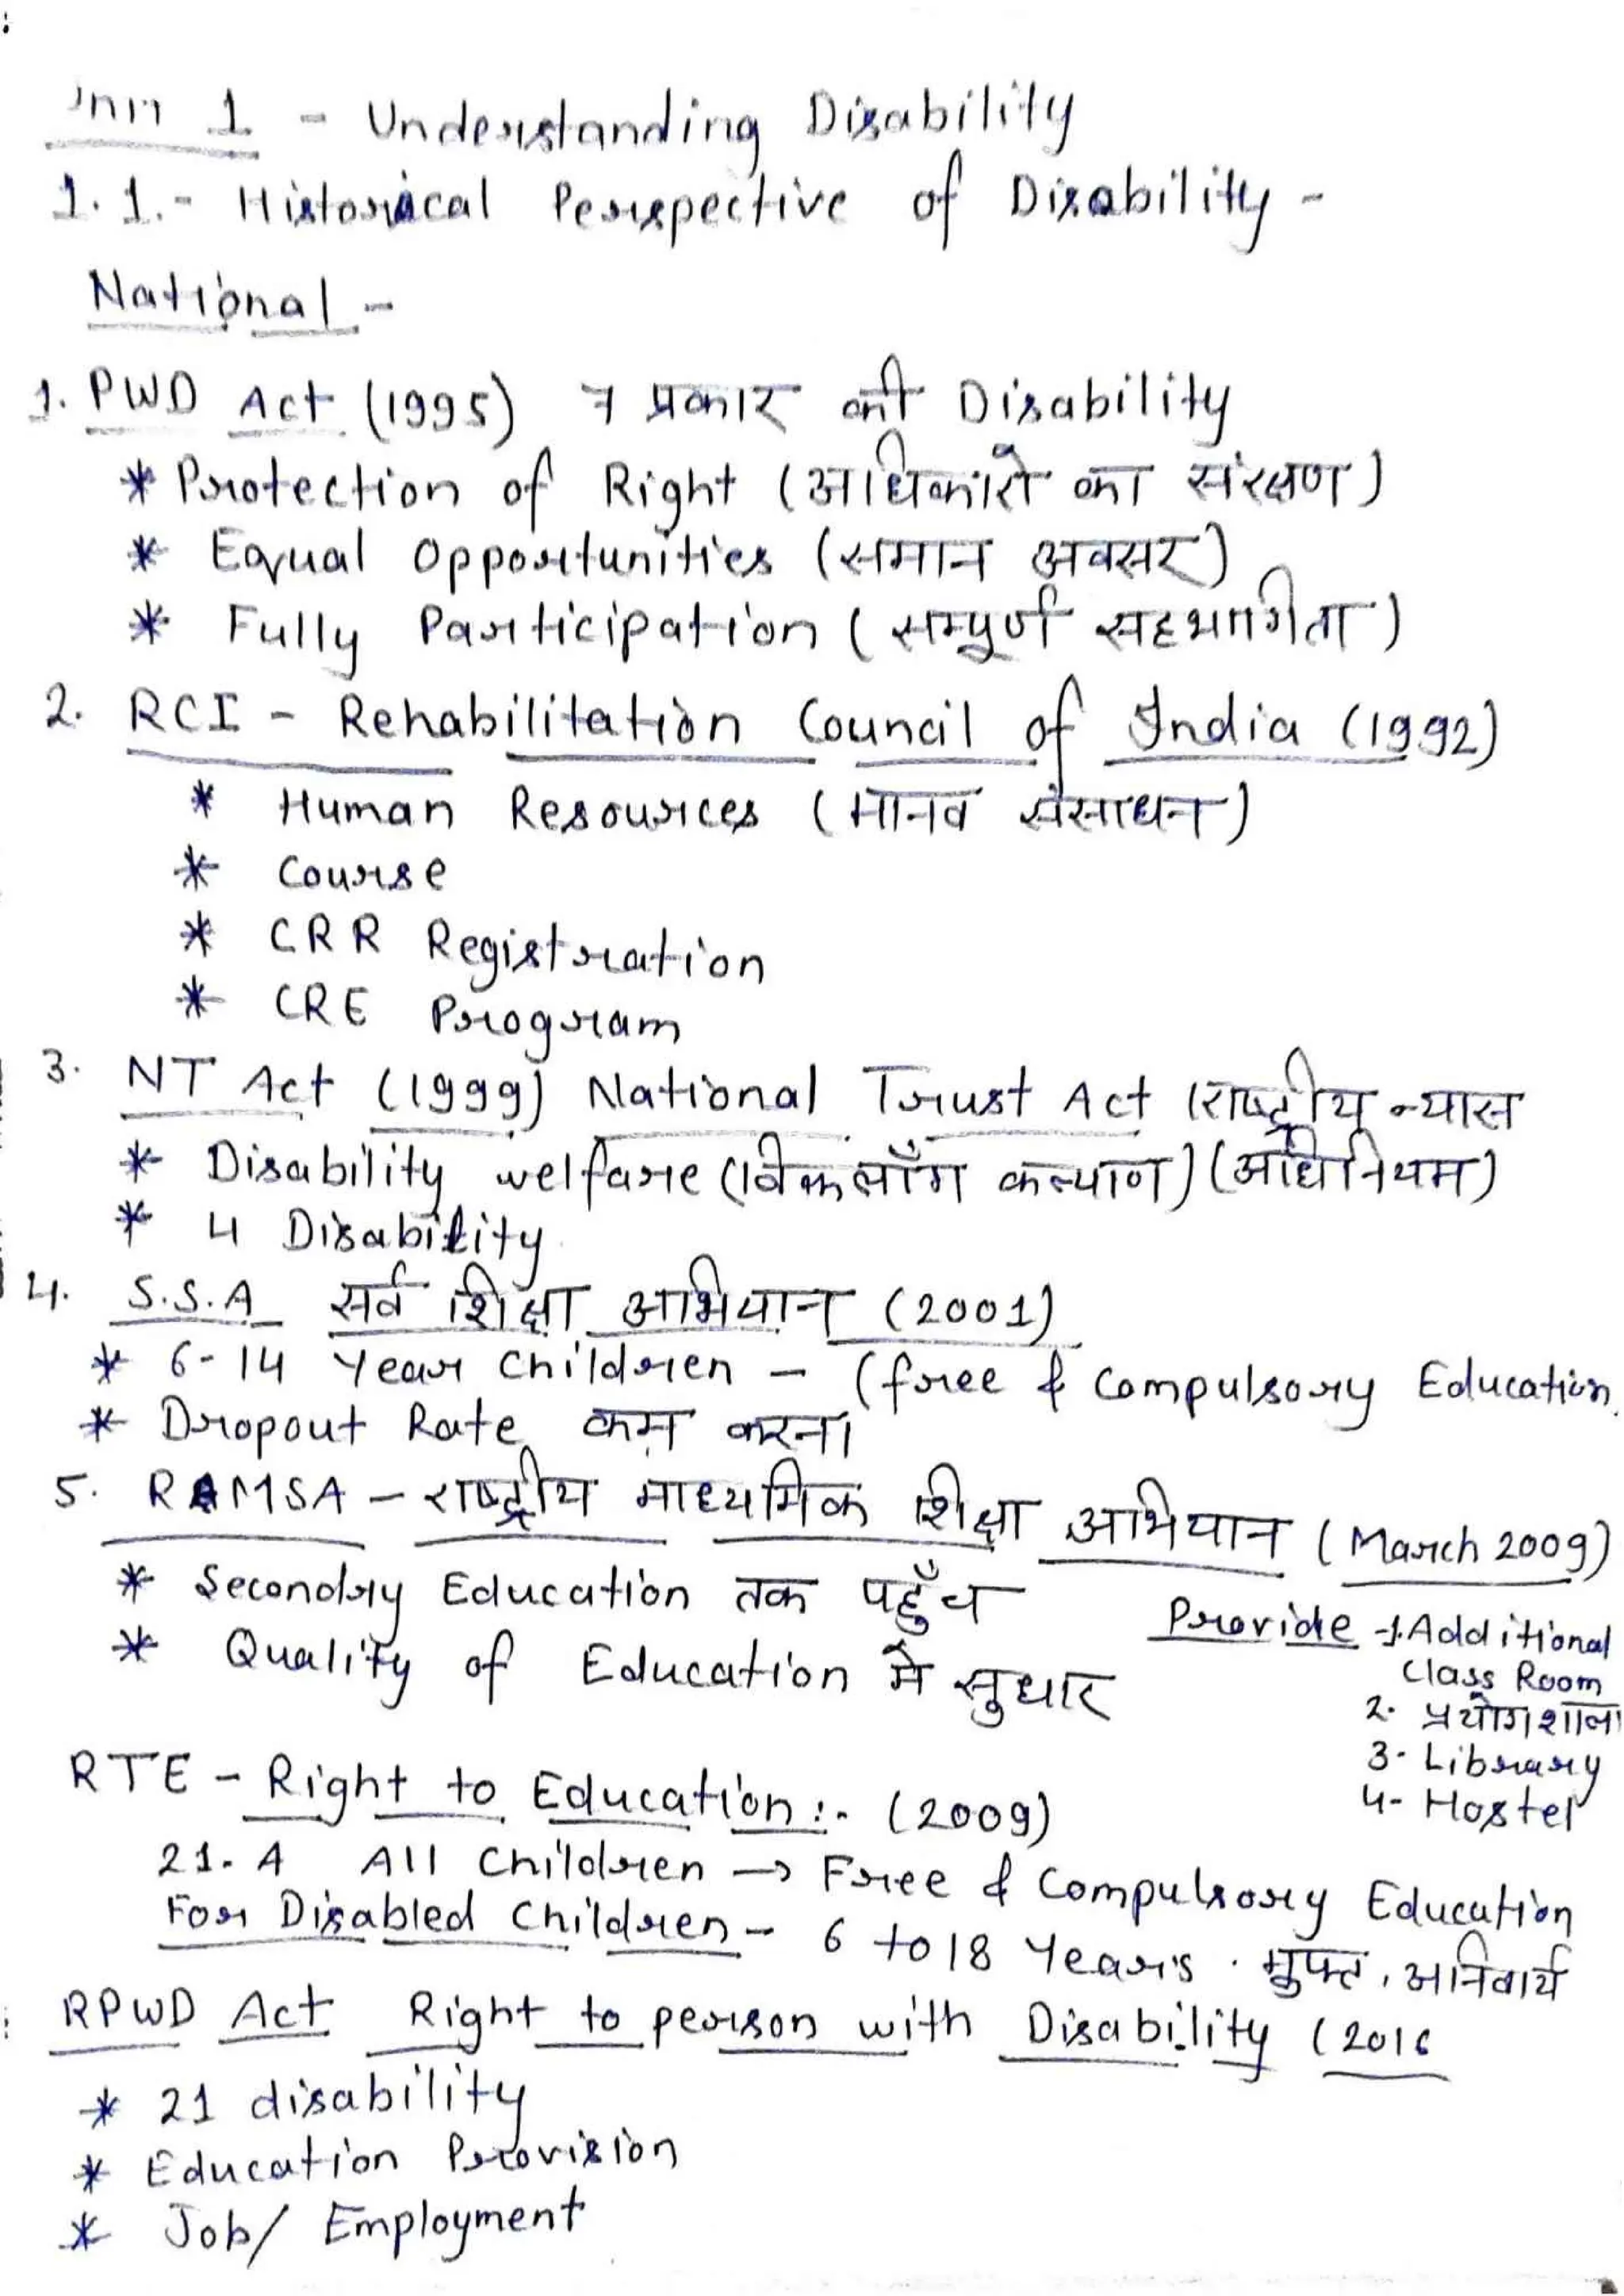 Unit 1 - Understanding Disability
1.1.- Historical Perspective of Disability -
National -
1. PWD Act (1995) 7 प्रकार की Disability
* Protection of Right (अधिकारो का संरक्षण)
* Equal Opportunities (समान अवसर)
* Fully Participation (सम्पूर्ण सहभागिता)
2. RCI - Rehabilitation Council of India (1992)
* Human Resources (मानव संसाधन)
* Course
* CRR Registration
* CRE Program
3. NT Act (1999) National Trust Act (राष्ट्रीय न्यास
* Disability welfare (विकलाँग कल्याण) (अधिनियम)
* 4 Disability
4. S.S.A सर्व शिक्षा अभियान (2001)
* 6-14 Year Children - (free & Compulsory Education
* Dropout Rate कम करना
5. RAMSA - राष्ट्रीय माध्यमिक शिक्षा अभियान (March 2009)
* Secondry Education तक पहुँच
* Quality of Education मे सुधार
Provide - 1. Additional
Class Room
2. प्रयोगशाला
3- Library
4- Hostel
RTE - Right to Education :- (2009)
21. A All Children → Free & Compulsory Education
For Disabled Children - 6 to 18 Years . मुफ्त, अनिवार्य
RPWD Act Right to person with Disability (2016
* 21 disability
* Education Provision
* Job/ Employment